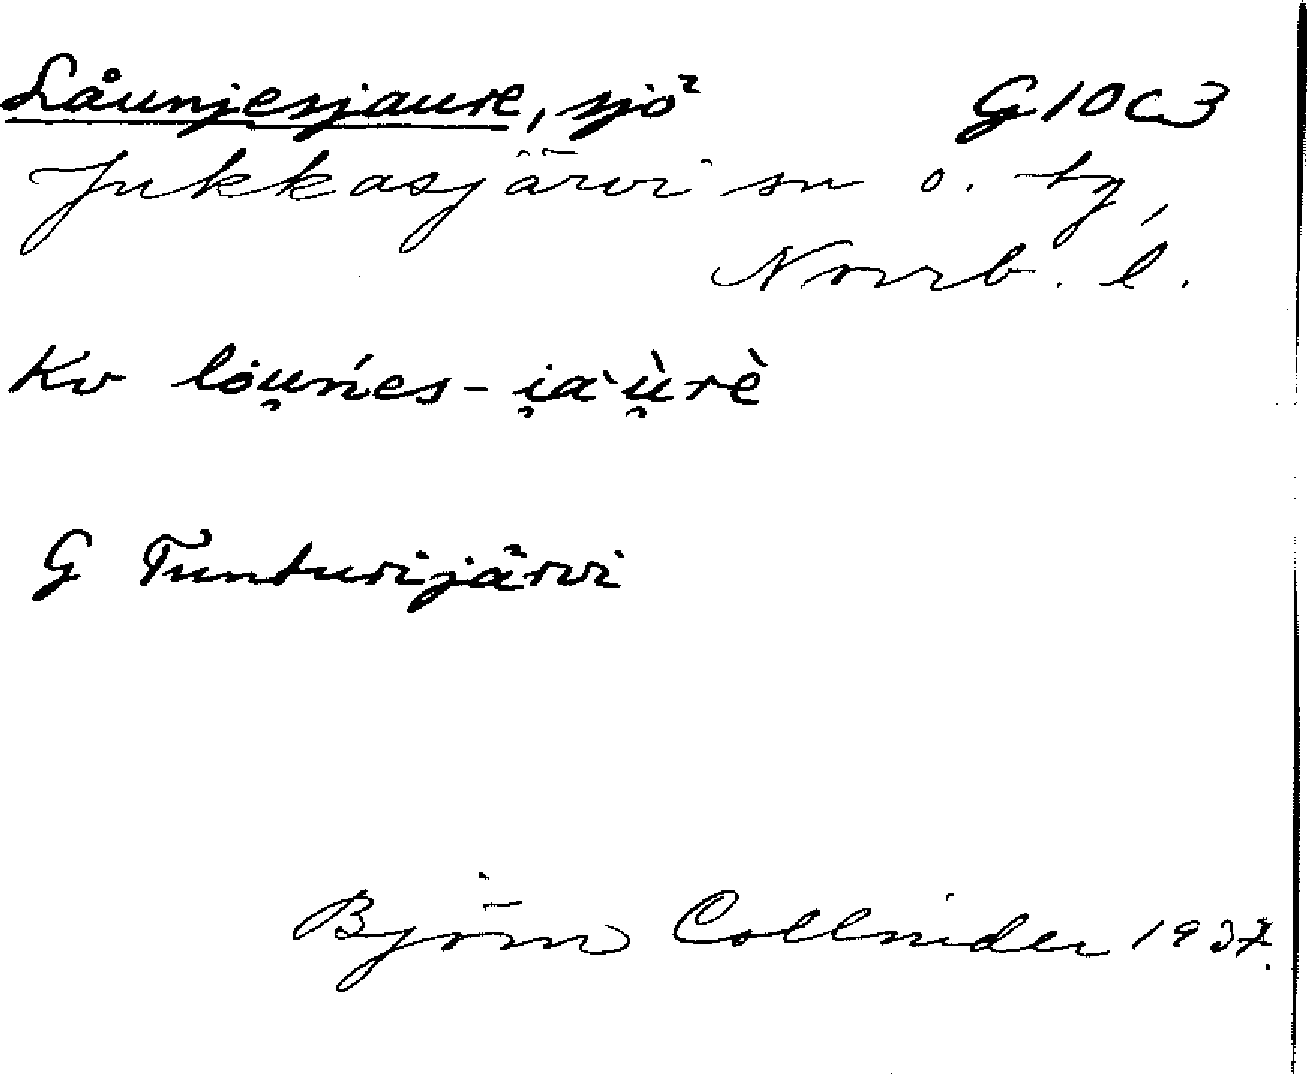 Låunjesjaure, sjö G10C3
Jukkasjärvi sn o. tg,
Norrb. l.
Kv lȯu̯ńes-i̯a`ù̯rè
G Tunturijärvi
Björn Collinder 1937.